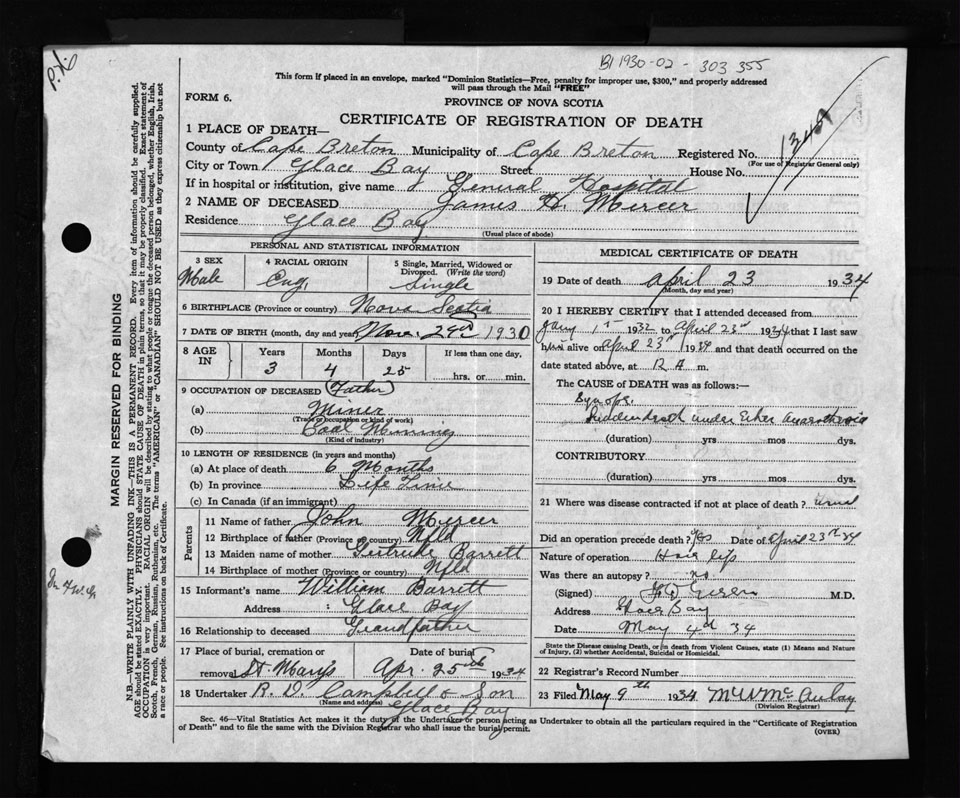 B1 1930-02 - 303 355
This form if placed in an envelope, marked "Dominion Statistics—Free, penalty for improper use, $300," and properly addressed
will pass through the Mail "FREE"
FORM 6.
PROVINCE OF NOVA SCOTIA
CERTIFICATE OF REGISTRATION OF DEATH
1 PLACE OF DEATH—
County of Cape Breton Municipality of Cape Breton Registered No.
(For use of Registrar General only)
City or Town Glace Bay Street House No.
If in hospital or institution, give name General Hospital
2 NAME OF DECEASED James H. Mercer
Residence Glace Bay
(Usual place of abode)
PERSONAL AND STATISTICAL INFORMATION
3 SEX 4 RACIAL ORIGIN 5 Single, Married, Widowed or
Divorced. (Write the word)
Male Eng. Single
6 BIRTHPLACE (Province or country) Nova Scotia
7 DATE OF BIRTH (month, day and year) Nov. 29th 1930
8 AGE IN Years Months Days If less than one day,
3 4 25 hrs. or min.
9 OCCUPATION OF DECEASED (Father)
(a) Miner
(Trade, occupation or kind of work)
(b) Coal Mining
(Kind of industry)
10 LENGTH OF RESIDENCE (in years and months)
(a) At place of death 6 Months
(b) In province Life Time
(c) In Canada (if an immigrant)
Parents
11 Name of father John Mercer
12 Birthplace of father (Province or country) Nfld
13 Maiden name of mother Gertrude Barrett
14 Birthplace of mother (Province or country) Nfld
15 Informant's name William Barrett
Address : Glace Bay
16 Relationship to deceased Grandfather
17 Place of burial, cremation or Date of burial
removal St. Marys Apr. 25th 1934
18 Undertaker R. D. Campbell & Son
(Name and address) Glace Bay
MEDICAL CERTIFICATE OF DEATH
19 Date of death April 23 1934
(Month, day and year)
20 I HEREBY CERTIFY that I attended deceased from
Jany 1st 1932 to April 23rd 1934 that I last saw
him alive on April 23rd 1934 and that death occurred on the
date stated above, at m.
The CAUSE OF DEATH was as follows:—
Syncope
Sudden death under Ether Anaesthesia
(duration) yrs mos dys.
CONTRIBUTORY
(duration) yrs mos dys.
21 Where was disease contracted if not at place of death?
Did an operation precede death? Yes Date of April 23rd 34
Nature of operation Hare lip
Was there an autopsy? no
(Signed) M.D.
Address Glace Bay
Date May 4th 34
State the Disease causing Death, or in death from Violent Causes, state (1) Means and Nature
of Injury, (2) whether Accidental, Suicidal or Homicidal.
22 Registrar's Record Number
23 Filed May 9th 1934 McAulay
(Division Registrar)
Sec. 46—Vital Statistics Act makes it the duty of the Undertaker or person acting as Undertaker to obtain all the particulars required in the "Certificate of Registration
of Death" and to file the same with the Division Registrar who shall issue the burial permit.
(OVER)
MARGIN RESERVED FOR BINDING
N.B.—WRITE PLAINLY WITH UNFADING INK—THIS IS A PERMANENT RECORD. Every item of information should be carefully supplied.
AGE should be stated EXACTLY. PHYSICIANS should STATE CAUSE OF DEATH in plain terms, so that it may be properly classified. Exact statement of
OCCUPATION is very important. RACIAL ORIGIN will be described by stating to what people or tongue the deceased person belonged, whether English, Irish,
Scotch, French, German, Russian, Ruthenian, etc. The terms "AMERICAN" or "CANADIAN" SHOULD NOT BE USED as they express citizenship but not
a race or people. See instructions on back of Certificate.